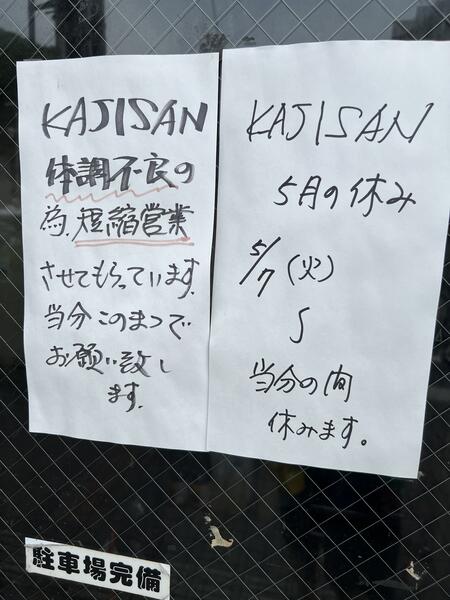 KAJISAN
体調不良の
為、短縮営業
させてもらっています。
当分このまつで
お願い致し
ます。
KAJISAN
5月の休み
5/7(火)
〜
当分の間
休みます。
駐車場完備